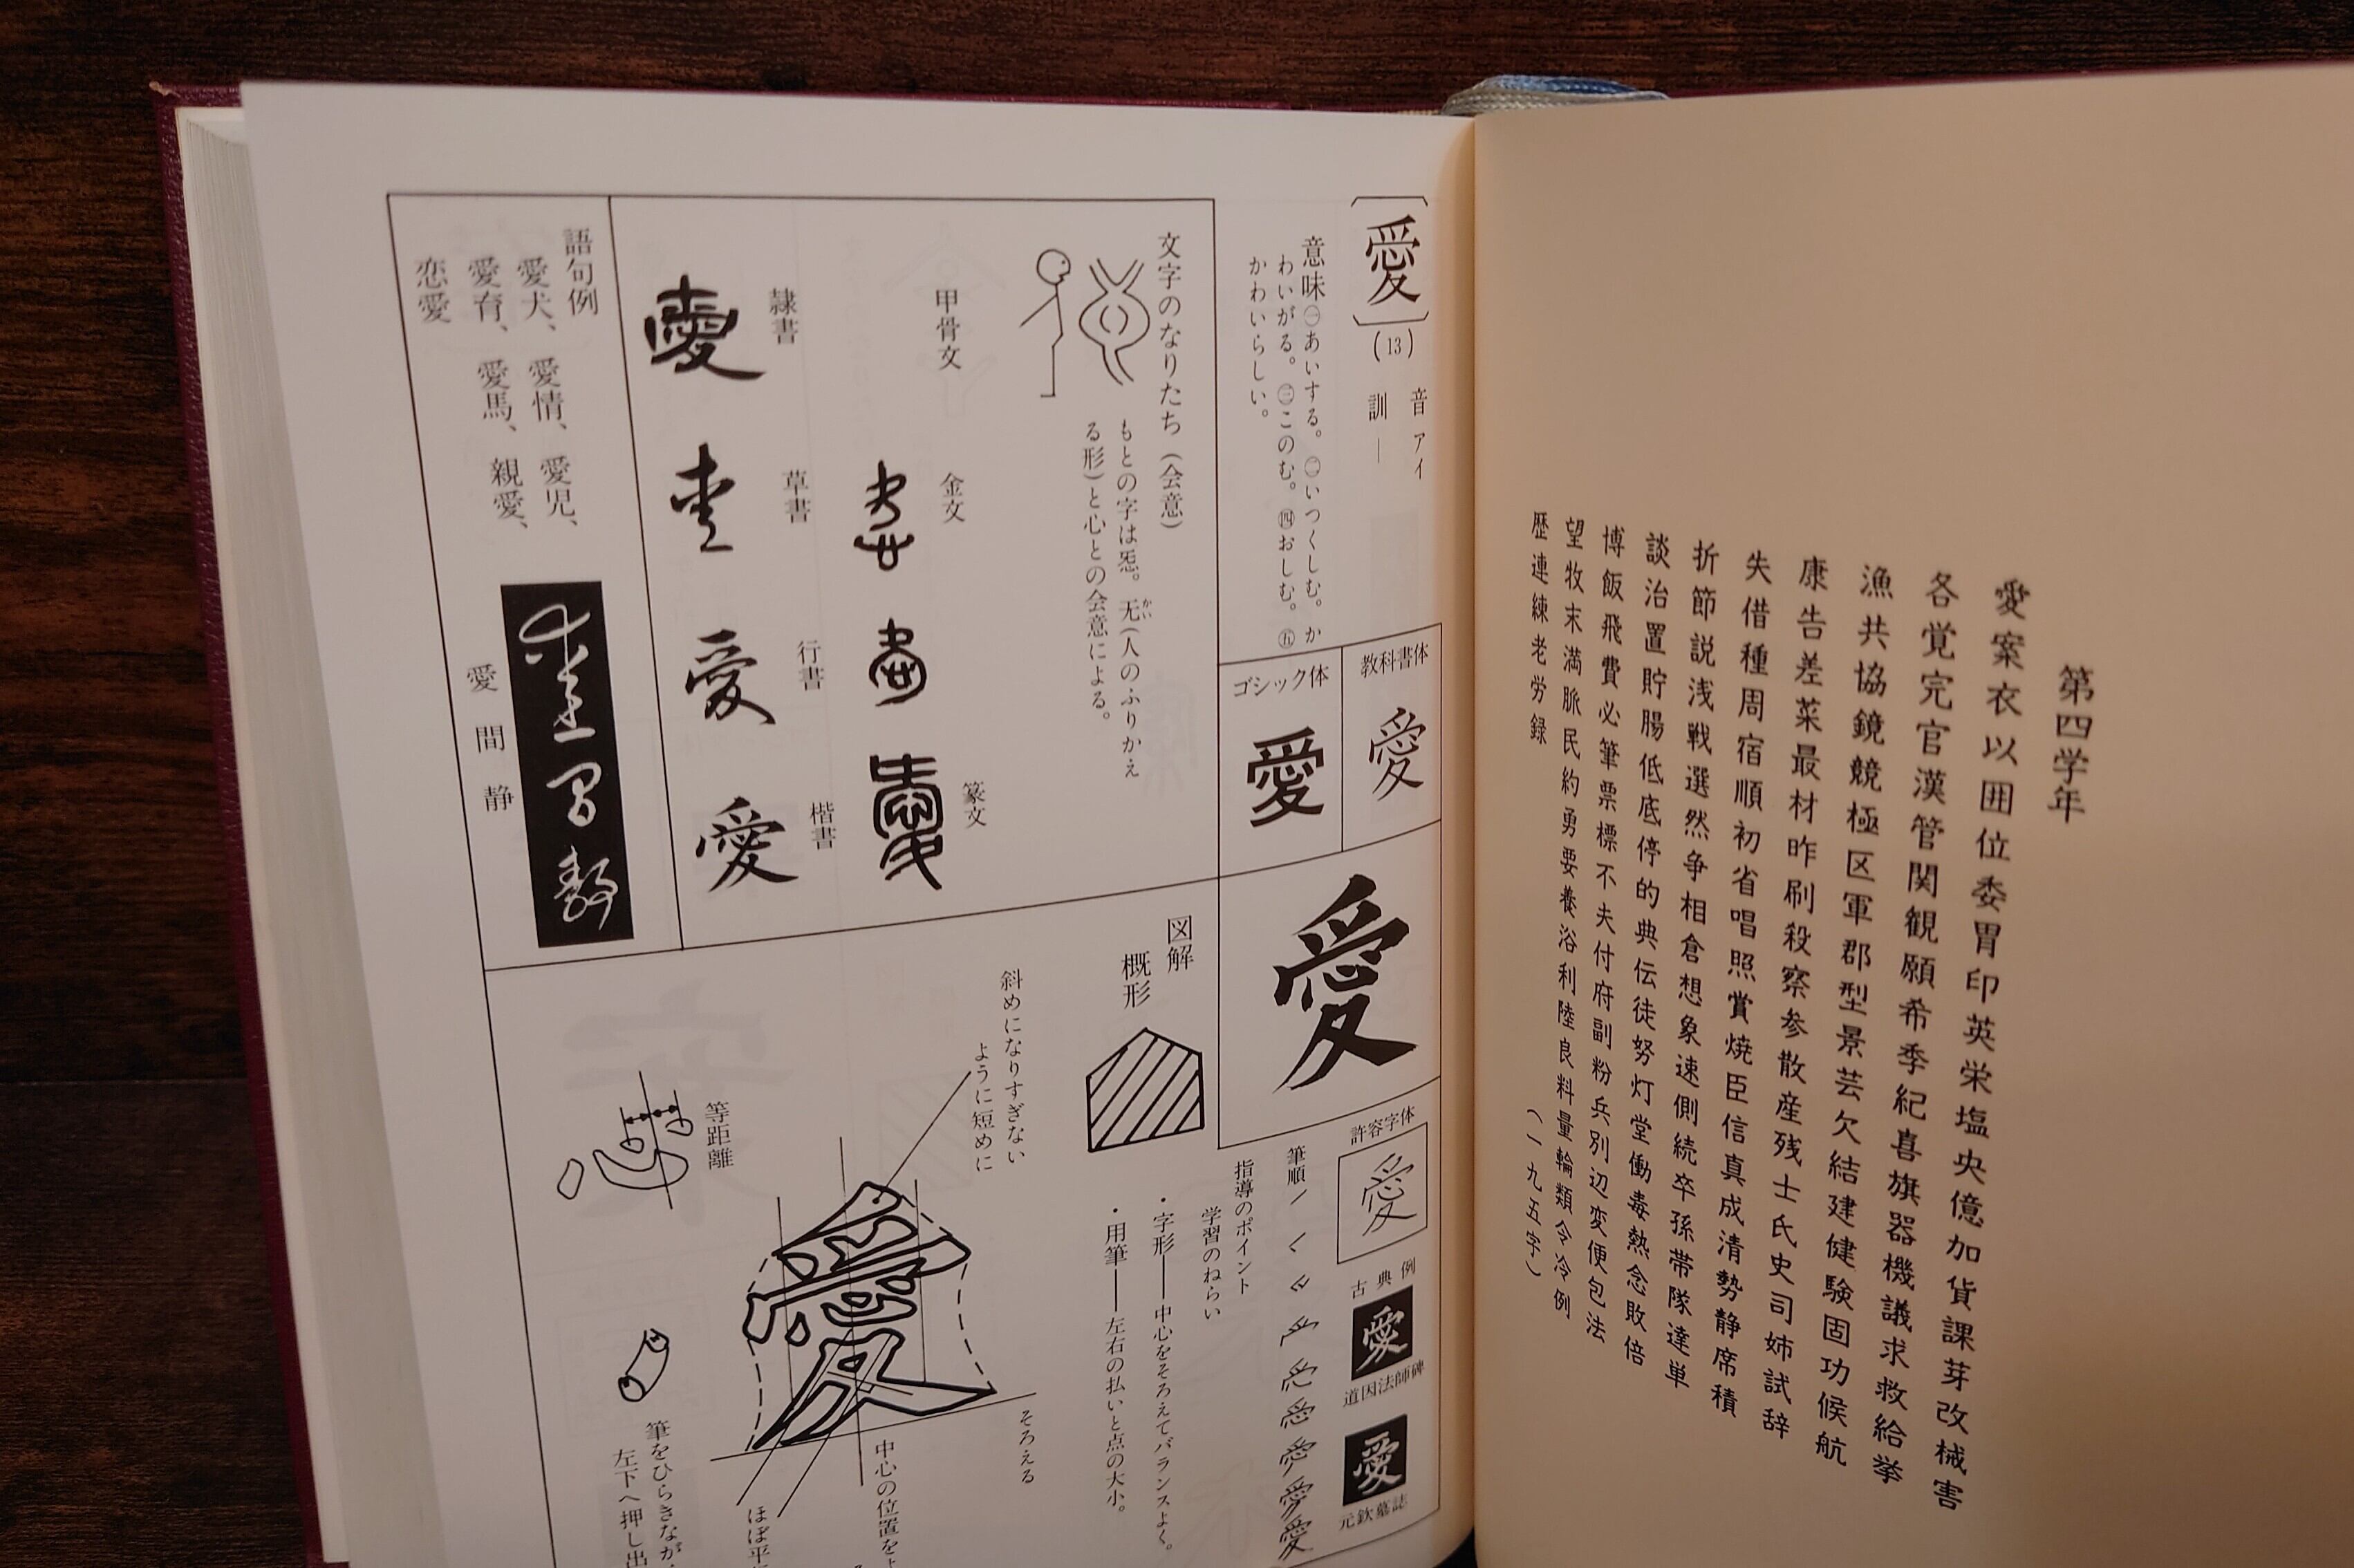 第四学年
愛案衣以囲位委胃印英栄塩央億加貨課芽改械害
各覚完官漢管関観願希季紀喜旗器機議求救給挙
漁共協鏡競極区軍郡型景芸欠結建健験固功候航
康告差菜最材昨刷殺察参散産残士氏史司姉試辞
失借種周宿順初省唱照賞焼臣信真成清勢静席積
折節説浅戦選然争相倉想象速側続卒孫帯隊達単
談治置貯腸低底停的典伝徒努灯堂働毒熱念敗倍
博飯飛費必筆票標不夫付府副粉兵別辺変便包法
望牧末満脈民約勇要養浴利陸良料量輪類令冷例
歴連練老労録
(一九五字)
〔愛〕(13)
音 アイ
訓 ―
意味㊀あいする。㊁いつくしむ。か
わいがる。㊂このむ。㊃おしむ。㊄
かわいらしい。
教科書体
愛
ゴシック体
愛
愛
許容字体
愛
古典例
愛
道因法師碑
愛
元欽墓誌
筆順
指導のポイント
学習のねらい
・字形――中心をそろえてバランスよく。
・用筆――左右の払いと点の大小。
文字のなりたち(会意)
もとの字は㤅。旡(人のふりかえ
かい
る形)と心との会意による。
甲骨文
金文
篆文
隷書
草書
行書
楷書
愛
愛
愛
愛
語句例
愛犬、愛情、愛児、
愛育、愛馬、親愛、
恋愛
愛間静
図解
概形
斜めになりすぎない
ように短めに
等距離
そろえる
中心の位置を
ほぼ平
筆をひらきなが
左下へ押し出